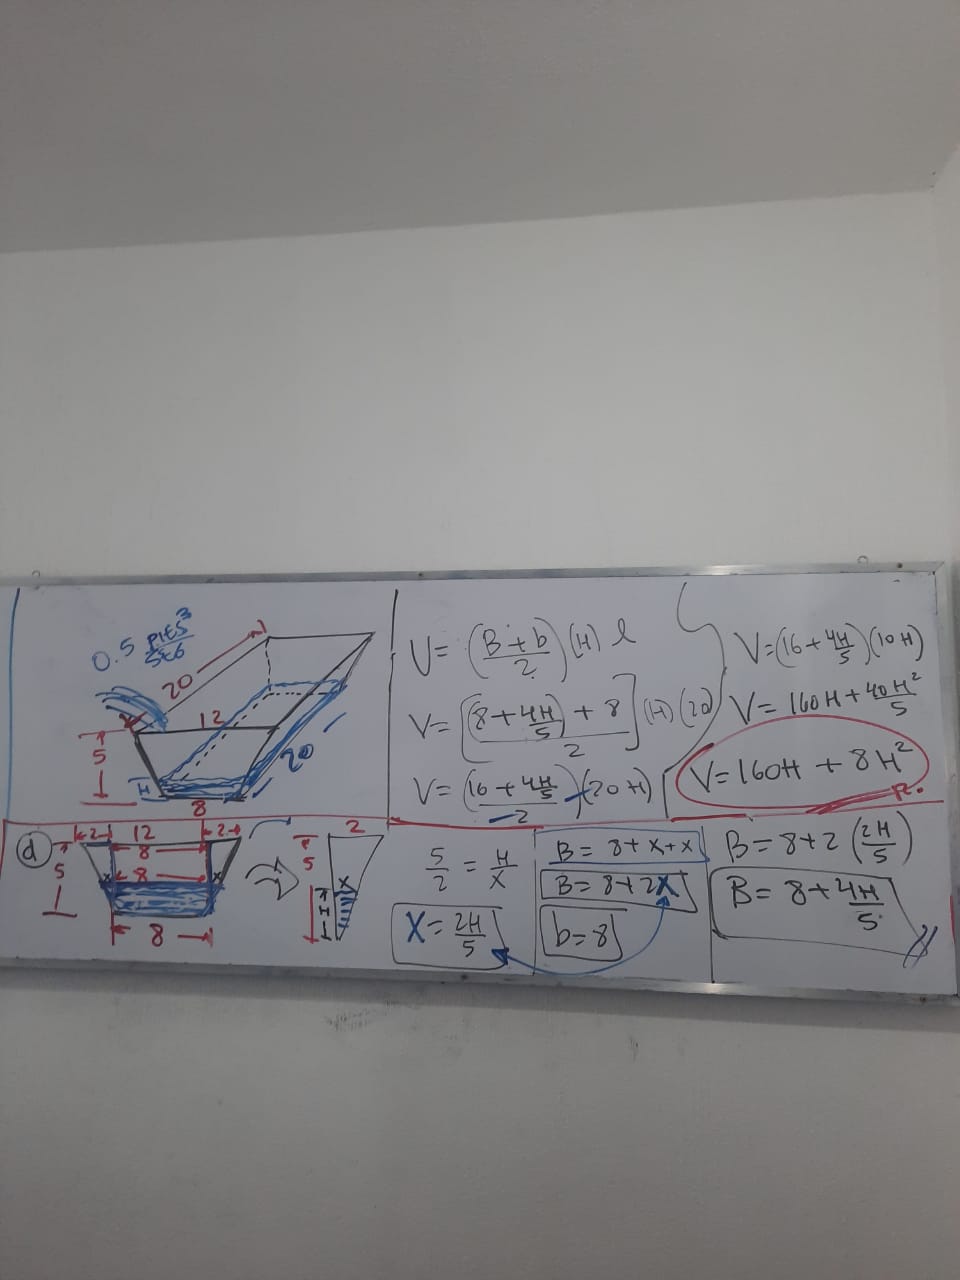 0.5 PIES³/SEG
20
12
5
H
20
8
V = (B + b / 2)(H) l
V = [(8 + 4H/5) + 8 / 2](H)(20)
V = (16 + 4H/5 / 2)(20H)
V = (16 + 4H/5)(10H)
V = 160H + 40H²/5
V = 160H + 8H²
R.
d
2 12 2
8
5
x 8 x
8
2
5
x
H
5/2 = H/X
X = 2H/5
B = 8 + x + x
B = 8 + 2x
b = 8
B = 8 + 2(2H/5)
B = 8 + 4H/5